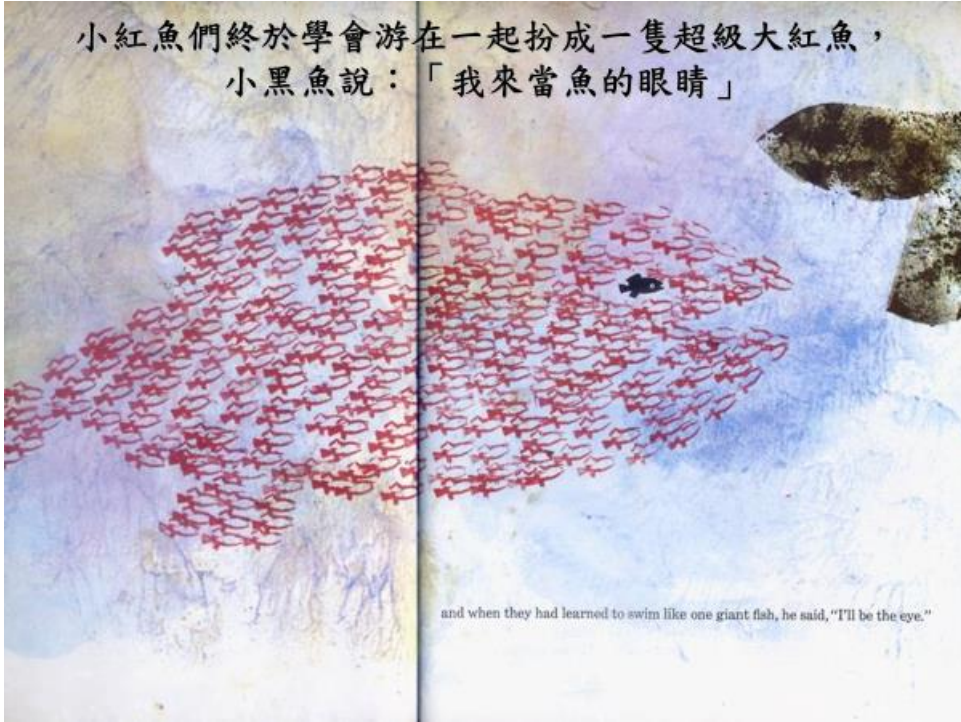 小紅魚們終於學會游在一起扮成一隻超級大紅魚，
小黑魚說：「我來當魚的眼睛」
and when they had learned to swim like one giant fish, he said, “I’ll be the eye.”